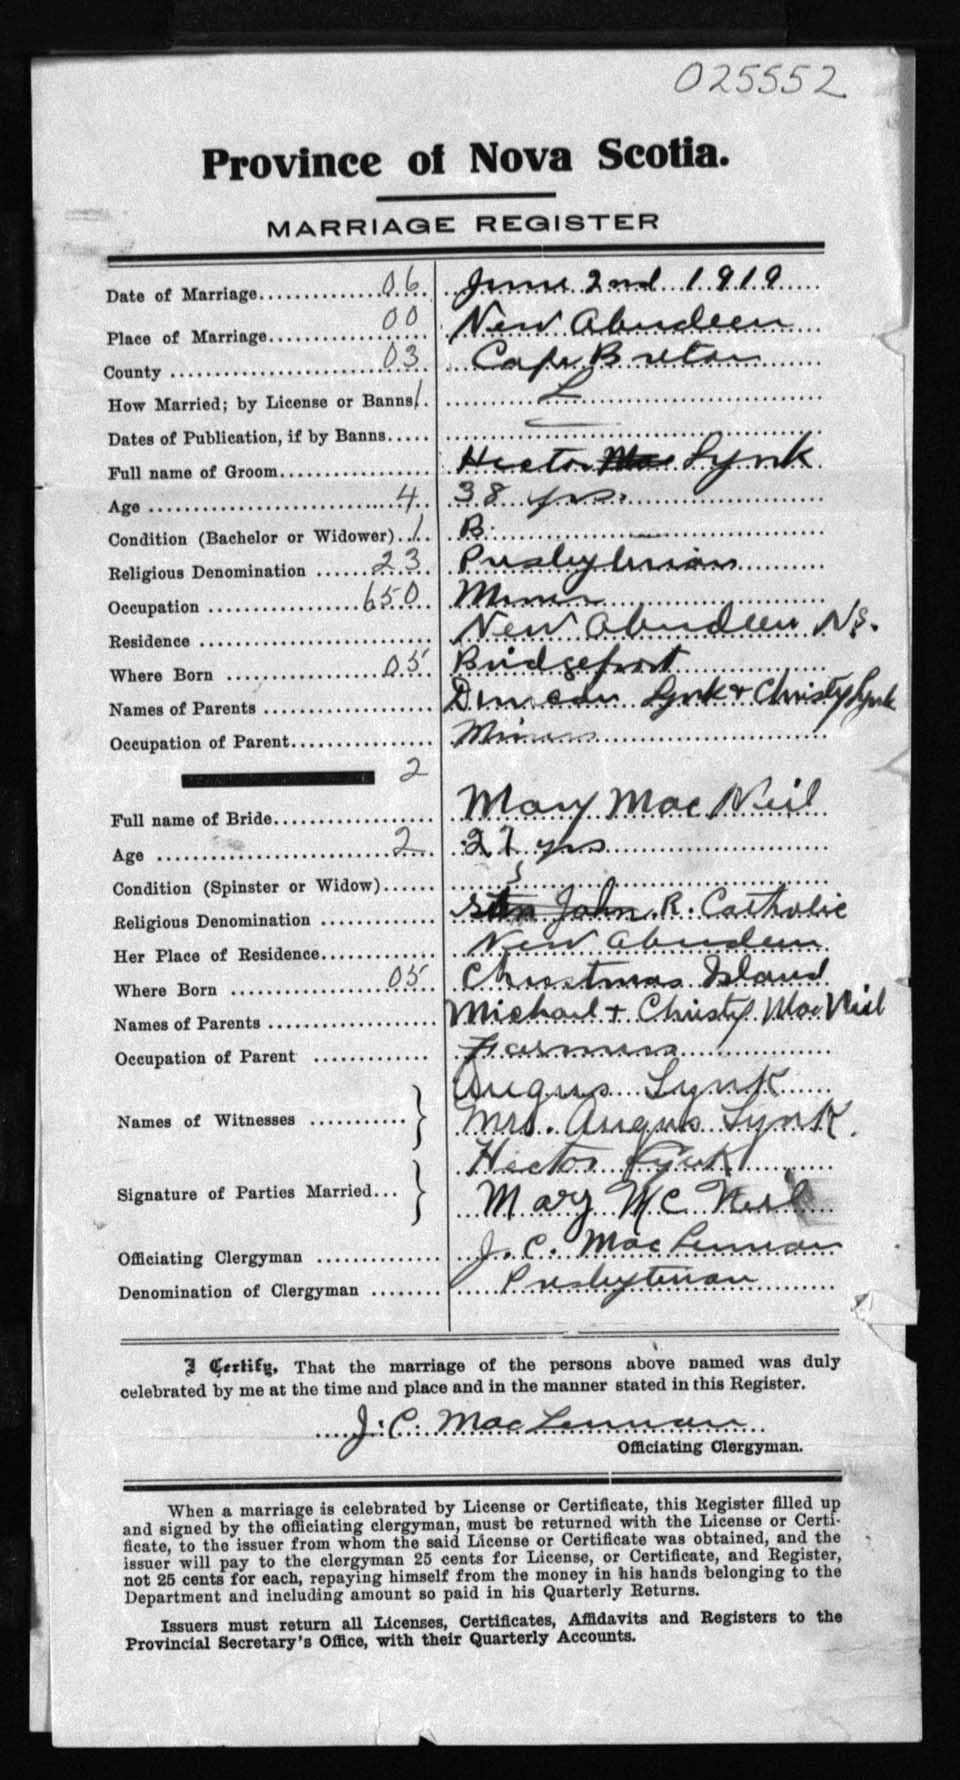 025552
Province of Nova Scotia.
MARRIAGE REGISTER
Date of Marriage 06 June 2nd 1919
Place of Marriage 00 New Aberdeen
County 03 Cape Breton
How Married; by License or Banns 1 L
Dates of Publication, if by Banns
Full name of Groom Hector Mac Lynk
Age 4 38 yrs.
Condition (Bachelor or Widower) 1 B.
Religious Denomination 23 Presbyterian
Occupation 650 Miner
Residence New Aberdeen N.S.
Where Born 05 Bridgeport
Names of Parents Duncan Lynk + Christy Lynk
Occupation of Parent Miner
2
Full name of Bride Mary Mac Neil
Age 2 27 yrs
Condition (Spinster or Widow) S
Religious Denomination John R. Catholic
Her Place of Residence New Aberdeen
Where Born 05 Christmas Island
Names of Parents Michael + Christy Mac Neil
Occupation of Parent Farmers
Names of Witnesses } Angus Lynk
Mrs. Angus Lynk.
Signature of Parties Married } Hector Lynk
Mary Mc Neil
Officiating Clergyman J. C. MacLennan
Denomination of Clergyman Presbyterian
I Certify, That the marriage of the persons above named was duly
celebrated by me at the time and place and in the manner stated in this Register.
J. C. MacLennan
Officiating Clergyman.
When a marriage is celebrated by License or Certificate, this Register filled up
and signed by the officiating clergyman, must be returned with the License or Certi-
ficate, to the issuer from whom the said License or Certificate was obtained, and the
issuer will pay to the clergyman 25 cents for License, or Certificate, and Register,
not 25 cents for each, repaying himself from the money in his hands belonging to the
Department and including amount so paid in his Quarterly Returns.
Issuers must return all Licenses, Certificates, Affidavits and Registers to the
Provincial Secretary's Office, with their Quarterly Accounts.